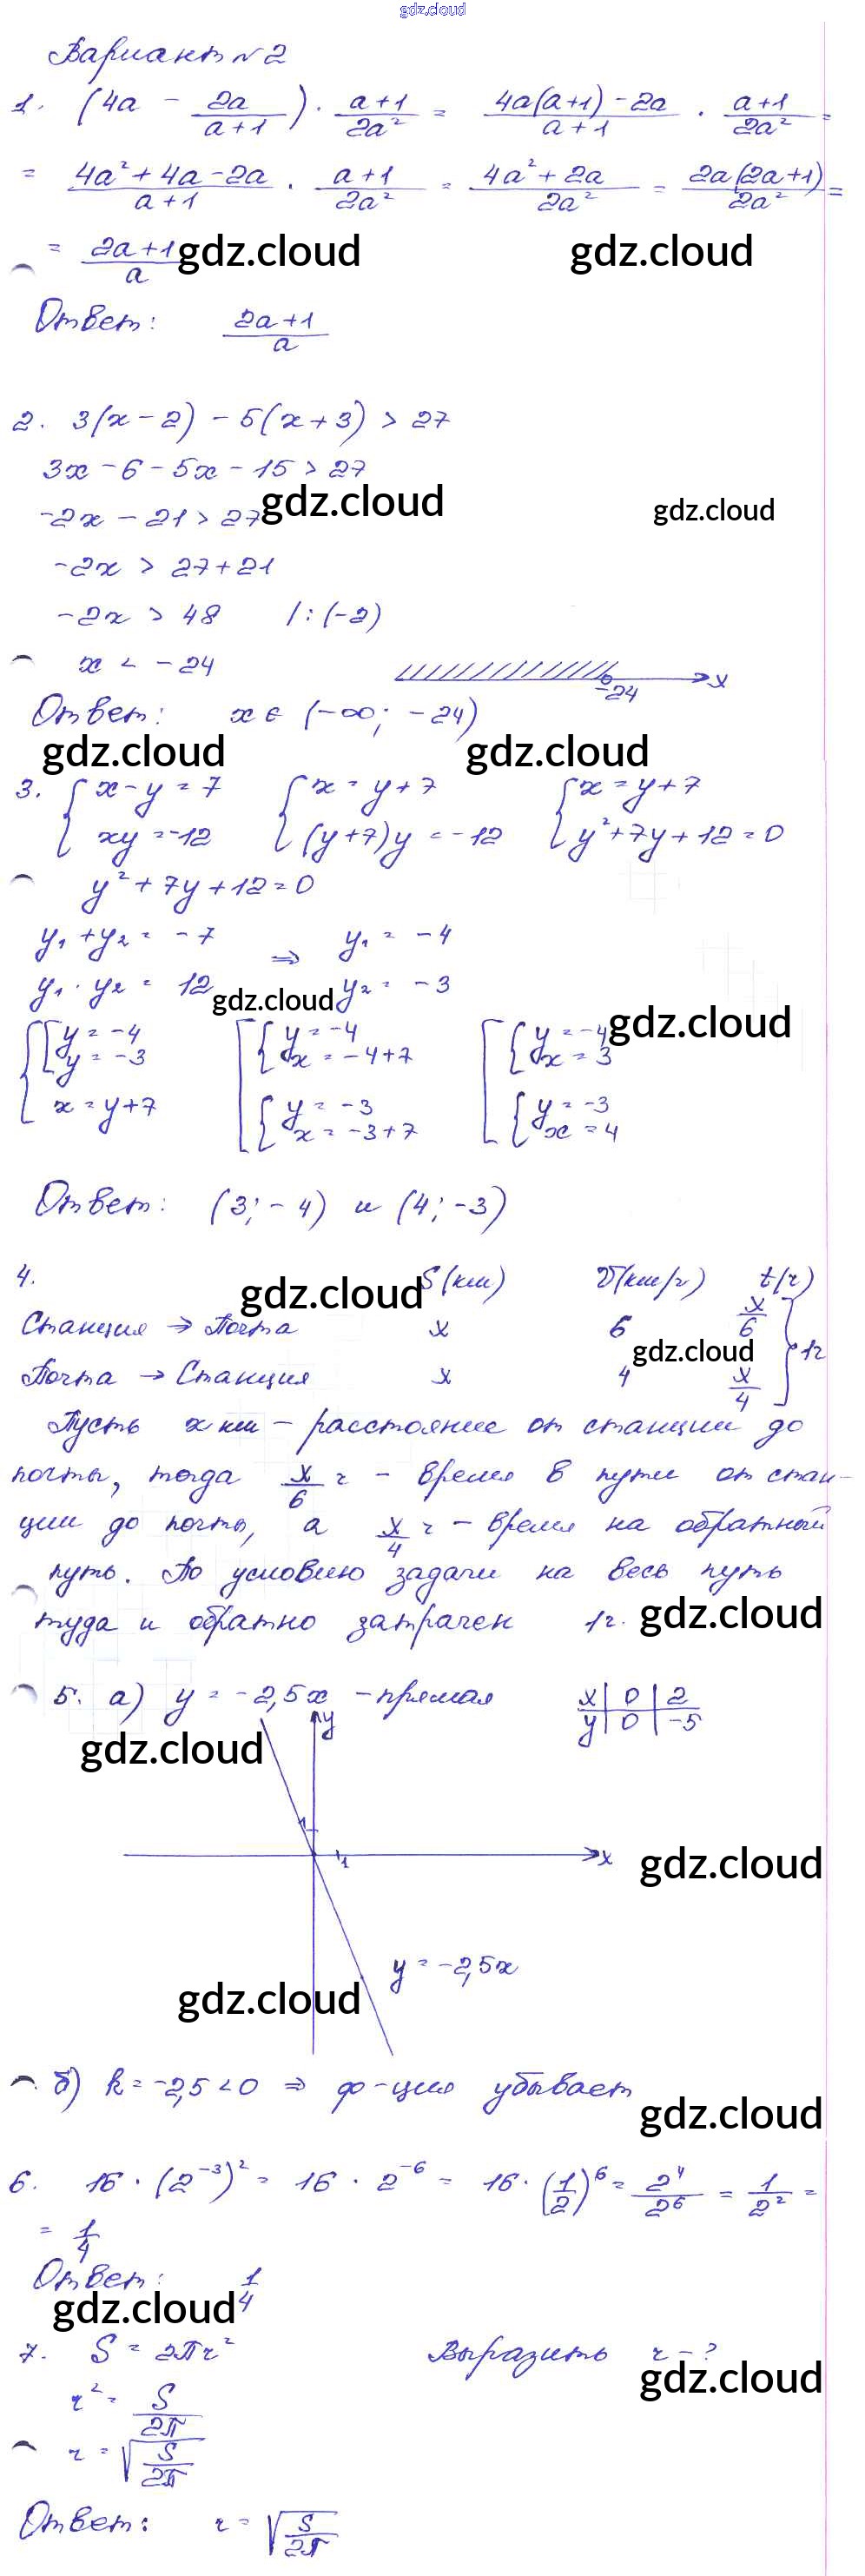 gdz.cloud
Вариант №2
1. (4a - 2a/(a+1)) · (a+1)/(2a²) = (4a(a+1) - 2a)/(a+1) · (a+1)/(2a²) =
= (4a² + 4a - 2a)/(a+1) · (a+1)/(2a²) = (4a² + 2a)/(2a²) = (2a(2a+1))/(2a²) =
= (2a+1)/a gdz.cloud gdz.cloud
Ответ: (2a+1)/a
2. 3(x-2) - 5(x+3) > 27
3x - 6 - 5x - 15 > 27
-2x - 21 > 27 gdz.cloud gdz.cloud
-2x > 27+21
-2x > 48 /:(-2)
x < -24 -24 x
Ответ: x ∈ (-∞; -24)
gdz.cloud gdz.cloud
3. { x-y=7 { x=y+7 { x=y+7
xy=-12 (y+7)y=-12 y²+7y+12=0
y²+7y+12=0
y₁+y₂ = -7 ⇒ y₁ = -4
y₁·y₂ = 12 gdz.cloud y₂ = -3
{ [ y=-4 [ { y=-4 [ { y=-4 gdz.cloud
y=-3 x=-4+7 x=3
x=y+7 { y=-3 { y=-3
x=-3+7 x=4
Ответ: (3;-4) и (4;-3)
4. gdz.cloud S(км) V(км/ч) t(ч)
Станция → Почта x 6 x/6 } 1ч
gdz.cloud
Почта → Станция x 4 x/4
Пусть x км - расстояние от станции до
почты, тогда x/6 ч - время в пути от стан-
ции до почты, а x/4 ч - время на обратный
путь. По условию задачи на весь путь
туда и обратно затрачен 1ч. gdz.cloud
5. а) y = -2,5x - прямая x | 0 | 2
y | 0 | -5
y
gdz.cloud
1
1 x gdz.cloud
y = -2,5x
gdz.cloud
б) k = -2,5 < 0 ⇒ ф-ция убывает
gdz.cloud
6. 16 · (2⁻³)² = 16 · 2⁻⁶ = 16 · (1/2)⁶ = 2⁴/2⁶ = 1/2² =
= 1/4
Ответ: 1/4
gdz.cloud
7. S = 2πr² Выразить r - ?
gdz.cloud
r² = S/2π
r = √(S/2π)
Ответ: r = √(S/2π)